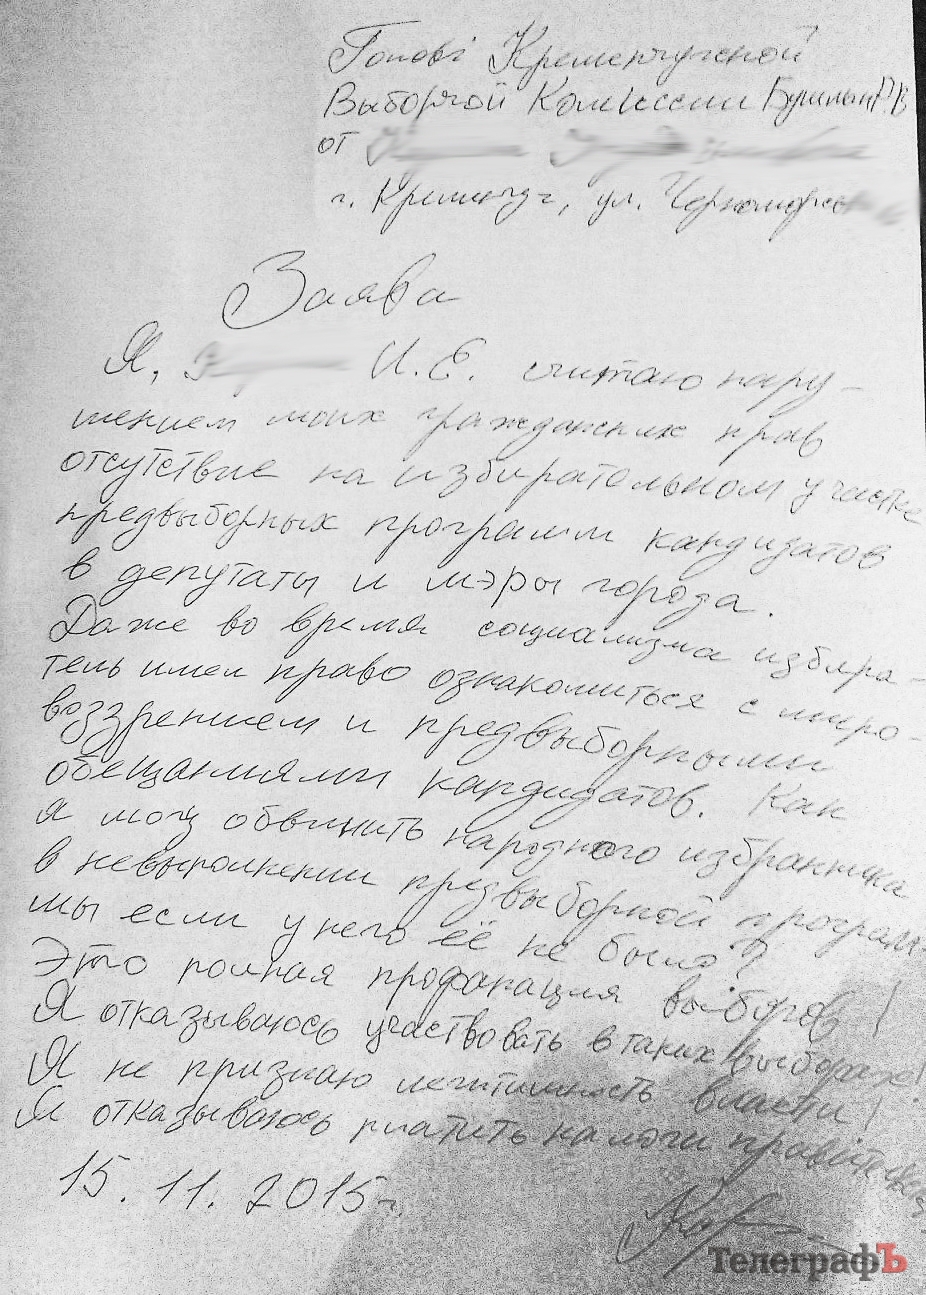 Голові Кременчугской
Выборчой Комиссии
от
г. Кременчуг, ул.
Заява
Я, И.Е. считаю нару-
шением моих гражданских прав
отсутствие на избирательном участке
предвыборных программ кандидатов
в депутаты и мэры города.
Даже во время социализма избира-
тель имел право ознакомиться с миро-
воззрением и предвыборными
обещаниями кандидатов. Как
я могу обвинить народного избранника
в невыполнении предвыборной програм-
мы если у него её не было?
Это полная профанация выборов!
Я отказываюсь участвовать в таких выборах!
Я не признаю легитимность власти!
Я отказываюсь платить налоги
15.11.2015г.
ТелеграфЪ